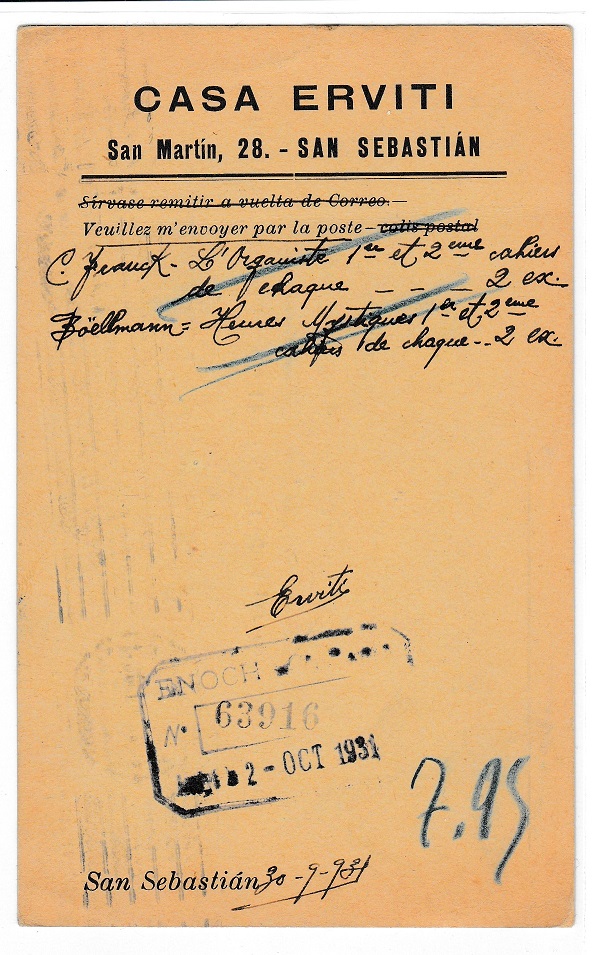 CASA ERVITI
San Martín, 28. - SAN SEBASTIÁN
Sírvase remitir a vuelta de Correo.—
Veuillez m'envoyer par la poste - colis postal
C. Franck - L'Organiste 1er et 2eme cahiers
de chaque - - - 2 ex.
Böellmann = Heures Mystiques 1er et 2eme
cahiers de chaque -- 2 ex.
Erviti
ENOCH
No. 63916
2 - OCT 1931
7.95
San Sebastián 30 - 9 - 931